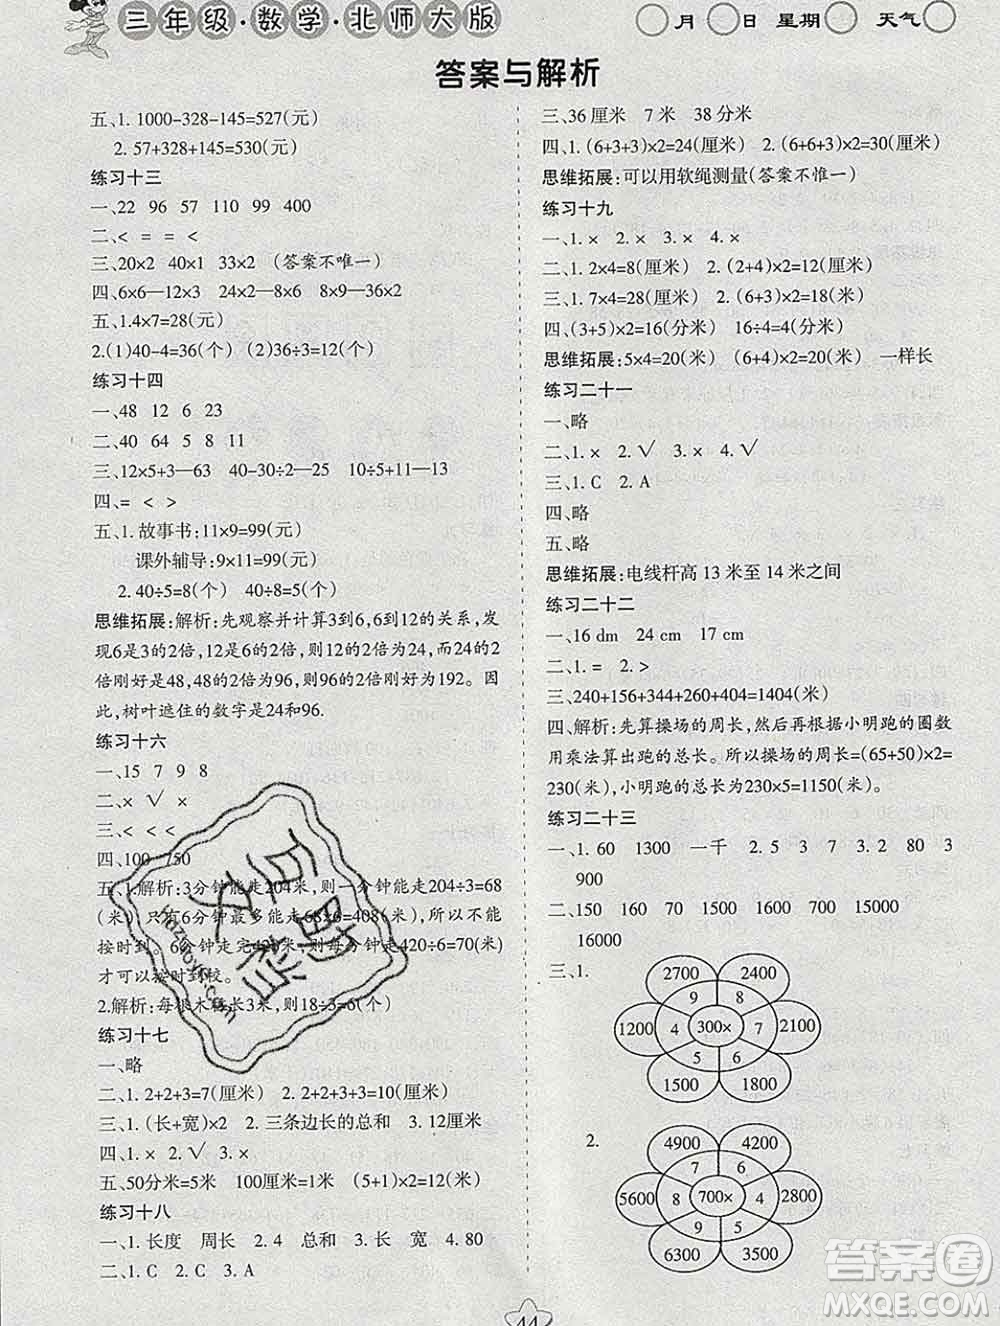 三年级·数学·北师大版
月 日 星期 天气
答案与解析
五、1. 1000-328-145=527(元)
2. 57+328+145=530(元)
练习十三
一、22 96 57 110 99 400
二、< = = <
三、20×2 40×1 33×2 (答案不唯一)
四、6×6—12×3 24×2—8×6 8×9—36×2
五、1.4×7=28(元)
2.(1)40-4=36(个) (2)36÷3=12(个)
练习十四
一、48 12 6 23
二、40 44 5 8 11
三、12×5+3—63 40÷8-2—3 10÷5+11—13
四、= < >
五、1. 故事书:11×9=99(元)
课外辅导:9×11=99(元)
2. 40÷5=8(个) 40÷8=5(个)
思维拓展:解析:先观察并计算3到6,6到12的关系,发
现6是3的2倍,12是6的2倍,则12的2倍为24,而24的2
倍刚好是48,48的2倍为96,则96的2倍刚好为192。因
此,树叶遮住的数字是24和96.
练习十六
一、15 7 9 8
二、× √ ×
三、< < <
四、100 750
五、1.解析:3分钟能走204米,则一分钟能走204÷3=68
(米),只有6分钟最多能走68×6=408(米),所以不能
按时到。6分钟走完420米,则每分钟走420÷6=70(米)
才可以按时到校。
2.解析:每根木桩长3米,则18÷3=6(个)
练习十七
一、略
二、1. 2+2+3=7(厘米) 2. 2+2+3+3=10(厘米)
三、1.(长+宽)×2 2. 三条边长的总和 3. 12厘米
四、1.× 2.√ 3.×
五、50分米=5米 100厘米=1米 (5+1)×2=12(米)
练习十八
一、1. 长度 周长 2. 4 总和 3. 长 宽 4. 80
二、1. C 2. C 3. A
三、36厘米 7米 38分米
四、1. (6+3+3)×2=24(厘米) 2. (6+6+3)×2=30(厘米)
思维拓展:可以用软绳测量(答案不惟一)
练习十九
一、1. × 2. × 3. × 4. ×
二、1. 2×4=8(厘米) 2. (2+4)×2=12(厘米)
三、1. 7×4=28(厘米) 2. (6+3)×2=18(厘米)
四、(3+5)×2=16(分米) 16÷4=4(分米)
思维拓展:5×4=20(厘米) (6+4)×2=20(厘米) 一样长
练习二十一
一、略
二、1. × 2. √ 3. × 4. √
三、1. C 2. A
四、略
五、略
思维拓展:电线杆高 13 米至 14 米之间
练习二十二
一、16 dm 24 cm 17 cm
二、1. = 2. >
三、240+156+344+260+404=1404(米)
四、解析:先算操场的周长,然后再根据小明跑的圈数
用乘法算出跑的总长。所以操场的周长=(65+50)×2=
230(米),小明跑的总长为230×5=1150(米)。
练习二十三
一、1. 60 1300 一千 2. 5 3 7 3. 2 80 3
900
二、150 160 1500 1600 15000 15000
16000
三、1.
2700 2400
9 8
1200 4 300× 7 2100
5 6
1500 1800
2.
4900 4200
7 6
5600 8 700× 4 2800
9 5
6300 3500
44
答案圈
MXQE.COM